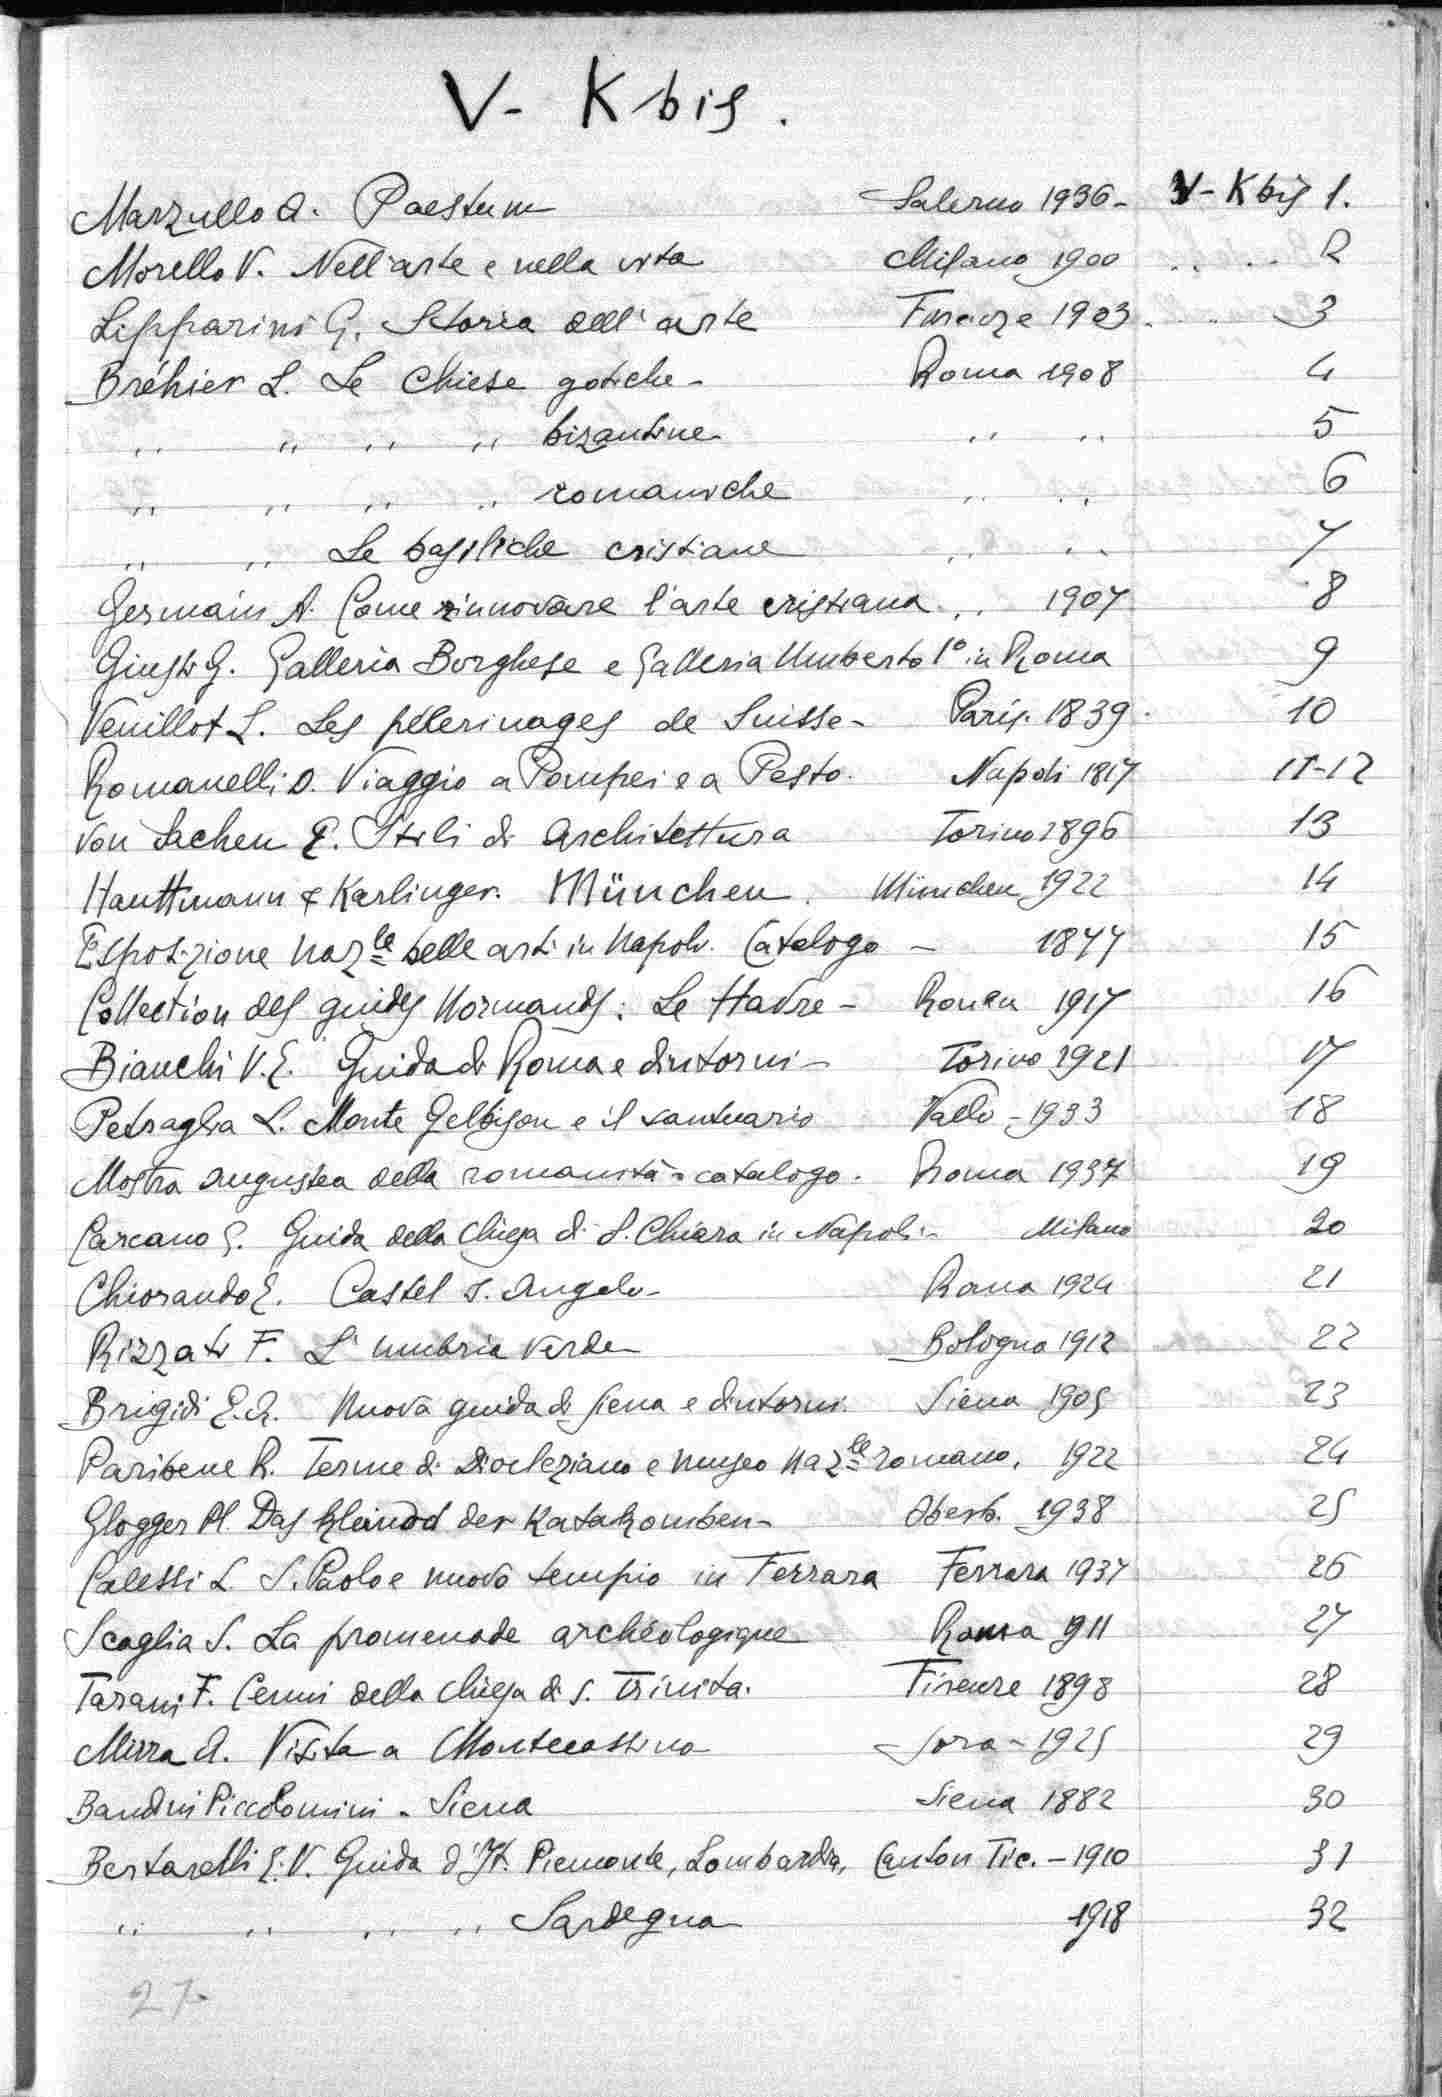 V- K bis.
Marzullo A. Paestum Salerno 1936- V- K bis 1.
Morello V. Nell'arte e nella vita Milano 1900 .. .. 2
Lipparini G. Storia dell'arte Firenze 1903. .. 3
Bréhier L. Le Chiese gotiche- Roma 1908 4
,, ,, ,, ,, bizantine ,, ,, 5
,, ,, ,, ,, romaniche ,, ,, 6
,, ,, Le basiliche cristiane ,, ,, 7
Germain A. Come rinnovare l'arte cristiana ,, 1907 8
Giusti G. Galleria Borghese e Galleria Umberto 1° in Roma 9
Veuillot L. Les pélerinages de Suisse- Paris. 1839. 10
Romanelli D. Viaggio a Pompei e a Pesto. Napoli 1817 11-12
von Sachen E. Stili di architettura Torino 1896 13
Hauttmann & Karlinger. München. München 1922 14
Esposizione naz.le belle arti in Napoli. Catalogo - 1877 15
Collection des guides Normands: Le Havre- Rouen 1917 16
Bianchi V.E. Guida di Roma e dintorni- Torino 1921 17
Petraglia L. Monte Gelbison e il santuario Vallo - 1933 18
Mostra augustea della romanità - catalogo. Roma 1937 19
Carcano G. Guida della chiesa di S. Chiara in Napoli- Milano 20
Chiorando E. Castel S. Angelo- Roma 1924 21
Rizzati F. L'umbria verde Bologna 1912 22
Brigidi E.A. Nuova guida di Siena e dintorni. Siena 1905 23
Paribene R. Terme di Diocleziano e museo naz.le romano. 1922 24
Glogger Pl. Das kleinod der Katakomben- Oberb. 1938 25
Calessi L. S. Paolo e nuovo tempio in Ferrara Ferrara 1937 26
Scaglia S. La promenade archéologique Roma 911 27
Tarani F. Cenni della chiesa di S. Trinita. Firenze 1898 28
Mirra A. Visita a Montecassino Sora - 1925 29
Bandini Piccolomini - Siena Siena 1882 30
Bertarelli L.V. Guida d'It. Piemonte, Lombardia, Canton Tic. - 1910 31
,, ,, ,, ,, Sardegna 1918 32
27.